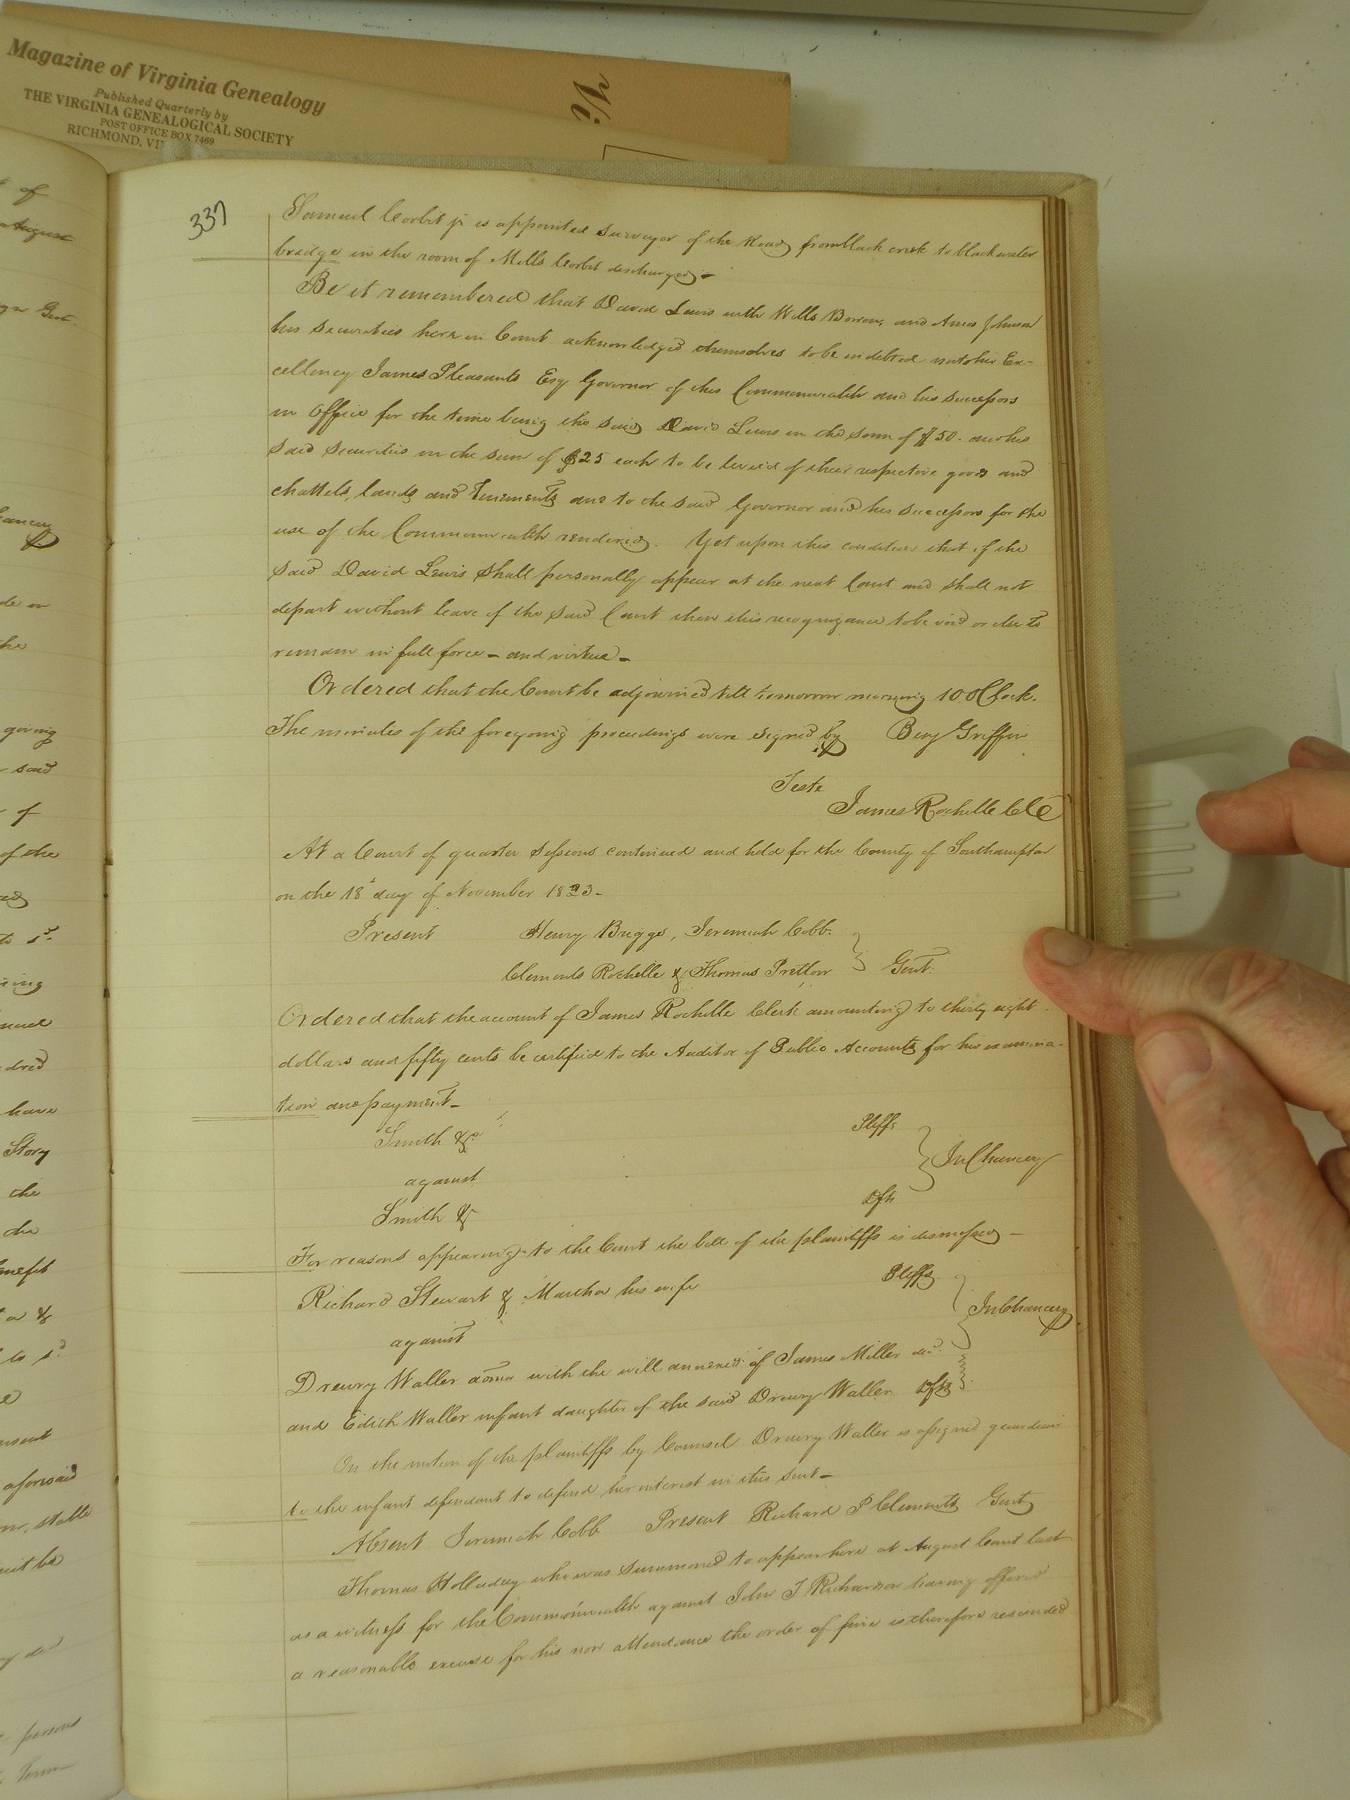 Magazine of Virginia Genealogy
Published Quarterly by
THE VIRGINIA GENEALOGICAL SOCIETY
POST OFFICE BOX 7469
RICHMOND, VI
337
Samuel Corbit jr is appointed Surveyor of the Road from black creek to blackwater
bridge in the room of Mills Corbit discharged
Be it remembered that David Lewis with Wills and Amos Johnson
his Securities here in Court acknowledged themselves to be indebted unto his Ex-
cellency James Pleasants Esq Governor of this Commonwealth and his successors
in Office for the time being the said David Lewis in the sum of $50. and his
said securities in the sum of $25 each to be levied of their respective goods and
chattels, lands and Tenements and to the said Governor and his successors for the
use of the Commonwealth rendered. Yet upon this condition that if the
said David Lewis shall personally appear at the next Court and shall not
depart without leave of the said Court then this recognizance to be void or else to
remain in full force - and virtue -
Ordered that the Court be adjourned till tomorrow morning 10 OClock.
The minutes of the foregoing proceedings were signed by Benj Griffin
Teste
James Rochelle
At a Court of quarter Sessions continued and held for the County of Southampton
on the 18 day of November 1823 -
Present Henry Briggs, Jeremiah Cobb
Clements Rochelle & Thomas Pretlow Gent.
Ordered that the account of James Rochelle Clerk amounting to thirty eight
dollars and fifty cents be certified to the Auditor of Public Accounts for his examina-
tion and payment -
Smith &c Pltffs
against In Chancery
Smith & Dfts
For reasons appearing to the Court the bill of the plaintiffs is dismissed -
Richard Stewart & Martha his wife Pltffs
against In Chancery
Drewry Waller admr with the will annexed of James Miller decd.
and Edith Waller infant daughter of the said Drewry Waller Dfts
On the motion of the plaintiffs by Counsel Drewry Waller is assigned guardian
to the infant defendant to defend her interest in this suit -
Absent Jeremiah Cobb Present Richard P Clements Gent
Thomas Holladay who was summoned to appear here at August Court last
as a witness for the Commonwealth against John T Richardson having offered
a reasonable excuse for his non attendance the order of fine is therefore rescinded